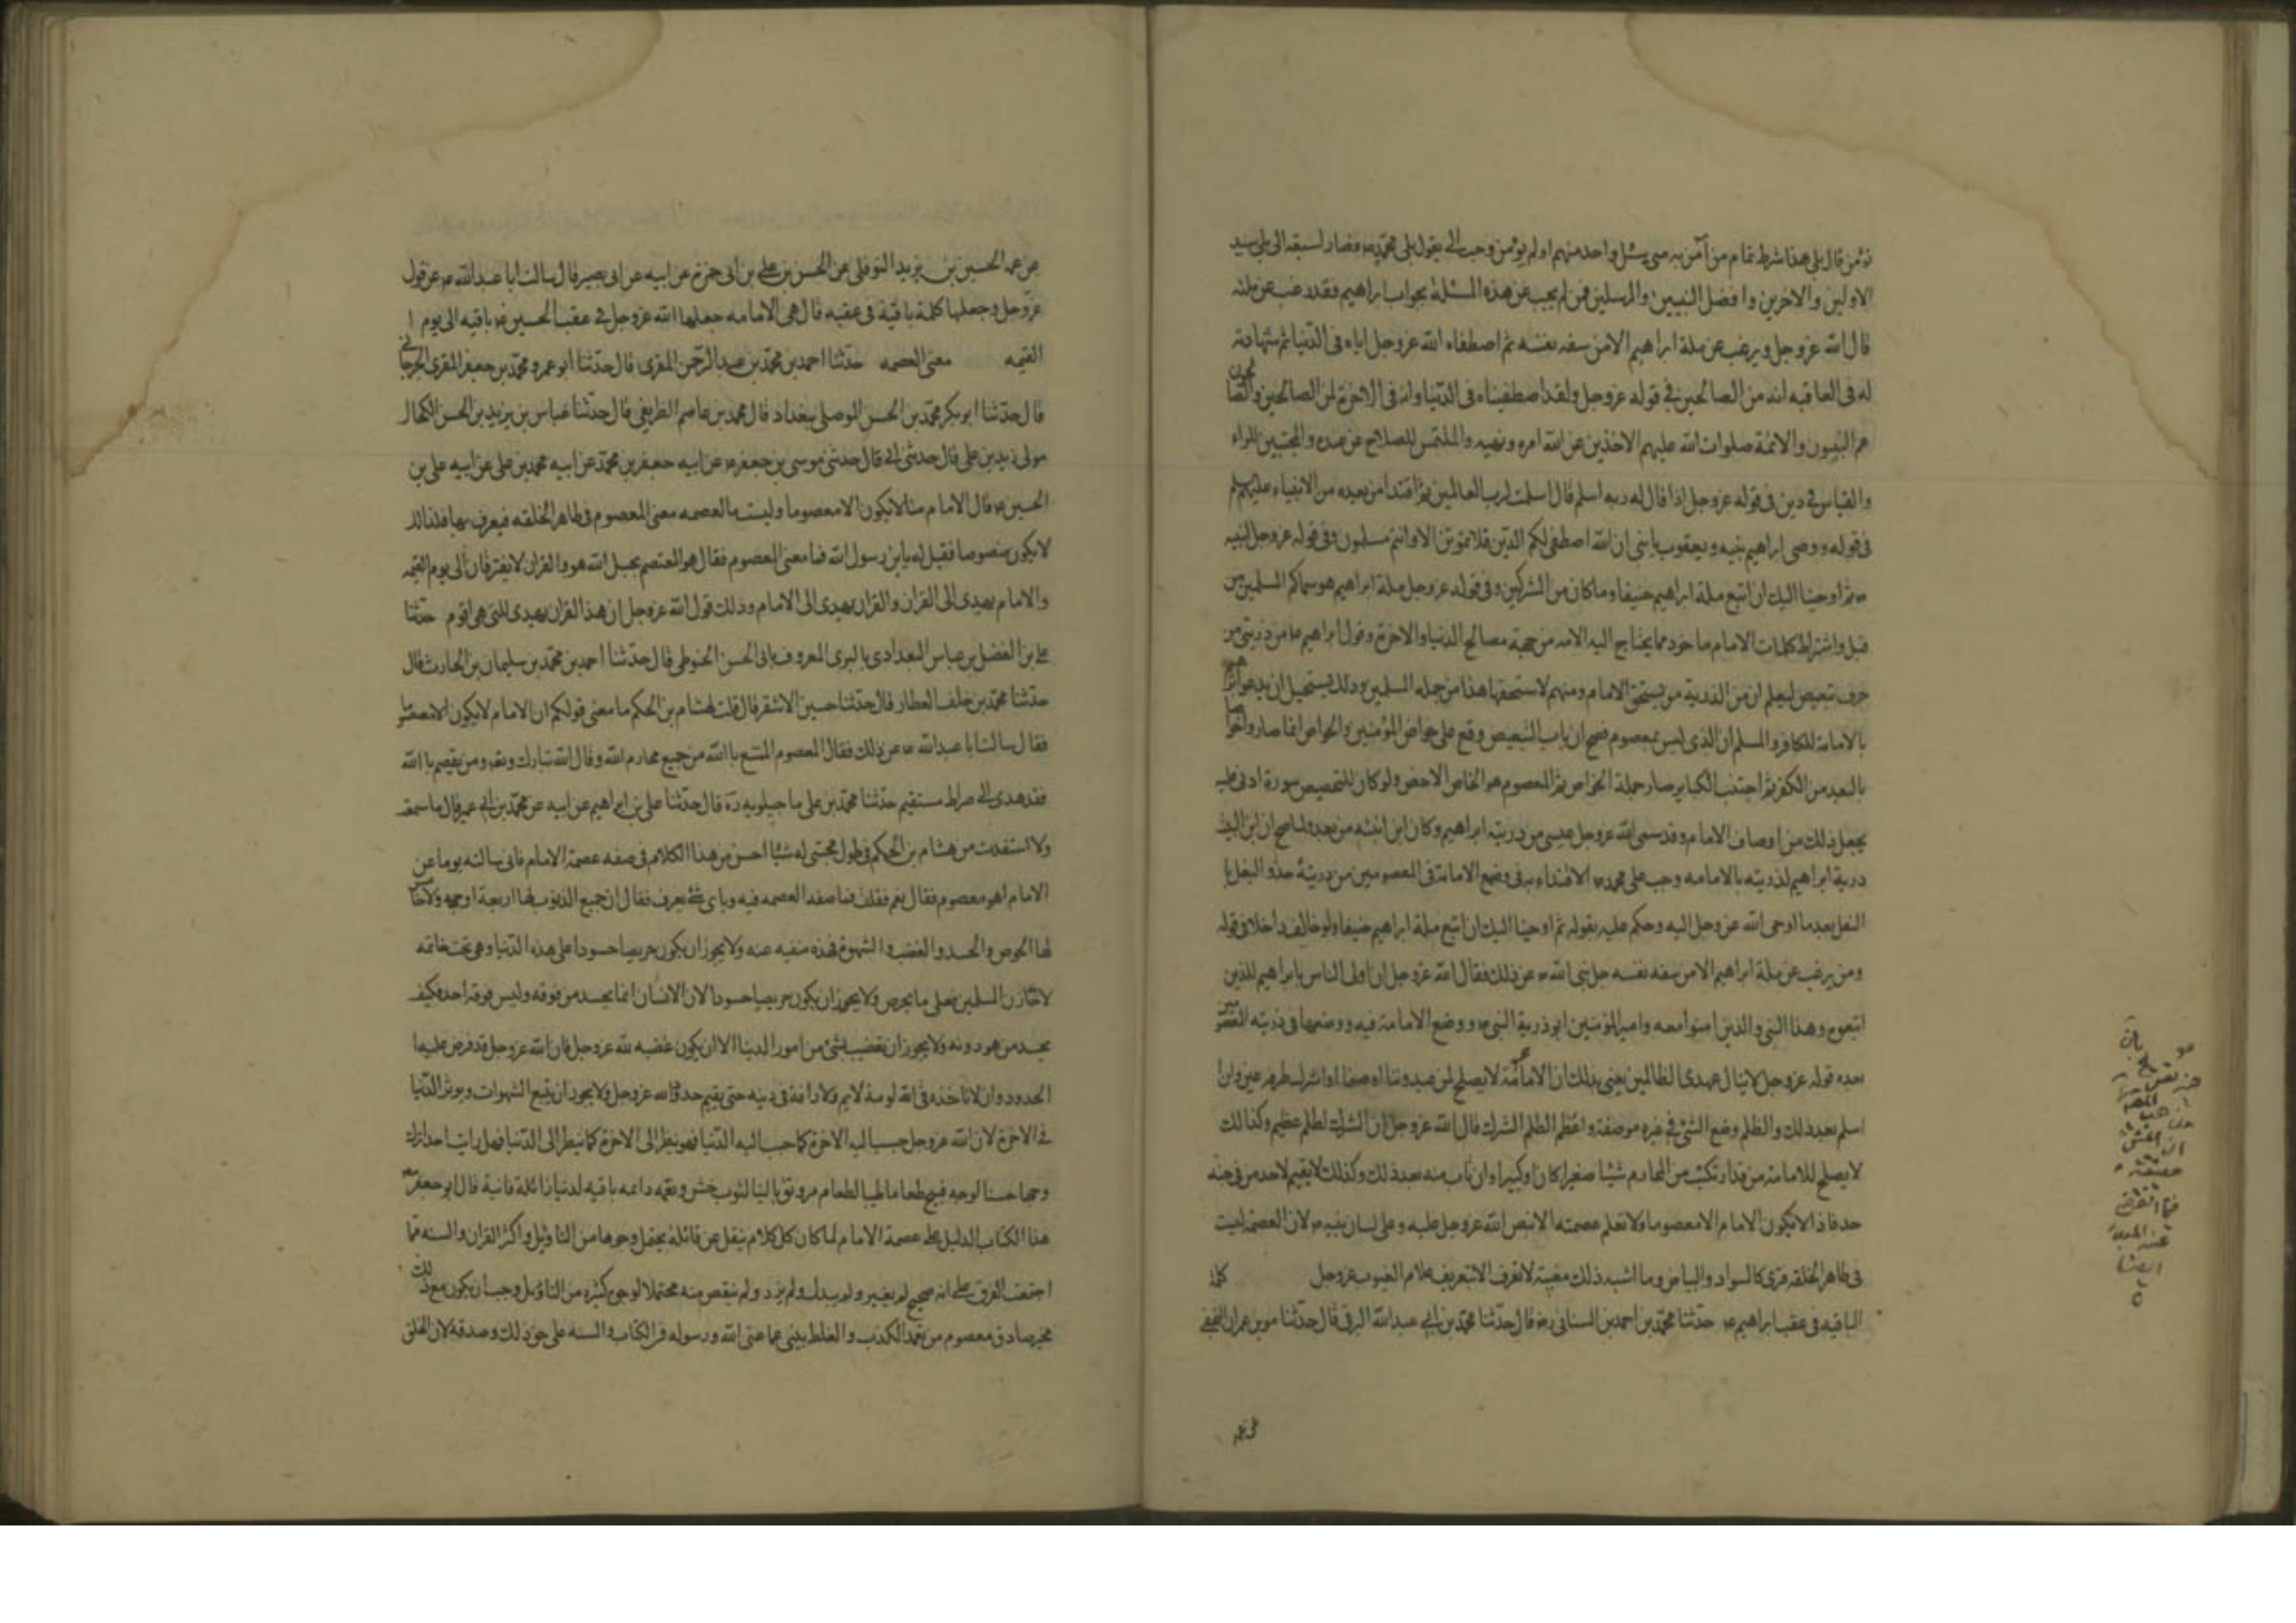 ثم من قال بلى هذا شرط تمام من آمن به متى سئل واحد منهم او لم يؤمن وجب الى يقول بلى محمد ص فصار لسبقه الى بلى سيد
الاولين والاخرين وافضل النبيين والمرسلين فمن لم يجب عن هذه المسئلة بجواب ابراهيم فقد رغب عن ملته
قال الله عزوجل ويرغب عن ملة ابراهيم الا من سفه نفسه ثم اصطفاء الله عزوجل اياه فى الدنيا ثم شهادته
له فى العاقبه انه من الصالحين فى قوله عزوجل ولقد اصطفيناه فى الدنيا وانه فى الاخرة لمن الصالحين والصالحون
هم النبيون والائمة صلوات الله عليهم الاخذين عن الله امره ونهيه والملتمس للصلاح من عنده والمجتبين للراء
والقياس فى دين فى قوله عزوجل اذا قال له ربه اسلم قال اسلمت لرب العالمين ثم اقتدا من بعده من الانبياء عليهم
فى قوله ووصى ابراهيم بنيه ويعقوب يا بنى ان الله اصطفى لكم الدين فلا تموتن الا وانتم مسلمون وفى قوله عزوجل لنبيه
ص ثم اوحينا اليك ان اتبع ملة ابراهيم حنيفا وما كان من المشركين وفى قوله عزوجل ملة ابراهيم هو سماكم المسلمين من
قبل واشتراط كلمات الامام ماخوذ مما يحتاج اليه الامه من جهة مصالح الدنيا والاخرة وقول ابراهيم ع من ذريتى من
حرف تبعيض ليعلم ان من الذرية من يستحق الامام ومنهم لا يستحقها هذا من جمله المسلمين وذلك يستحيل ان يدعو ابراهيم
بالامامة للكافر والمسلم ان الذى ليس بمعصوم فصح ان باب التبعيض وقع على خواص المؤمنين والخواص انما صاروا خواصا
بالبعد من الكفر ثم اجتنب الكباير صار جملة الخواص ثم المعصوم هو الخاص الاخص ولو كان للتخصيص صورة ادنى عليه
يجعل ذلك من اوصاف الامام وقد سمى الله عزوجل عيسى من ذرية ابراهيم وكان ابن ابنته من بعد ولما صح ان ابن البنت
درية ابراهيم لذريته بالامامه وجب على محمد ص الاقتداء به فى وضع الامامة فى المعصومين من ذريتة حذو النعل با
النعل بعد ما اوحى الله عزوجل اليه وحكم عليه بقوله ثم اوحينا اليك ان اتبع ملة ابراهيم حنيفا ولو خالف داخلا فى قوله
ومن يرغب عن ملة ابراهيم الا من سفه نفسه جل نبى الله ص عن ذلك فقال الله عزوجل ان اولى الناس بابراهيم للذين
اتبعوه وهذا النبى والذين امنوا معه وامير المؤمنين ابو ذرية النبى ص ووضع الامامة فيه ووضعها فى ذريته المعصومين
بعده قوله عزوجل لا ينال عهدى الظالمين يعنى بذلك ان الامامة لا يصلح لمن عبد وثنا او صنما او اشرك طرفه عين وان
اسلم بعد ذلك والظلم وضع الشئ فى غيره موضعه واعظم الظلم الشرك قال الله عزوجل ان الشرك لظلم عظيم وكذالك
لا يصلح للامامة من قد ارتكب من المحارم شيئا صغيرا كان او كبيرا وان تاب منه بعد ذلك وكذلك لا يقيم لاحد من فى جنبه
حد فاذا لا يكون الامام الا معصوما ولا تعلم عصمته الا بنص الله عزوجل عليه وعلى لسان نبيه ص لان العصمة ليست
فى ظاهر الخلقه فترى كالسواد والبياض وما اشبه ذلك مغيبة لا تعرف الا بتعريف علام الغيوب عزوجل كلمة
الباقيه فى عقب ابراهيم ع حدثنا محمد بن احمد بن السنانى رض قال حدثنا محمد بن ابى عبد الله البرقى قال حدثنا موسى بن عمران النخعى
عن عمه الحسين بن يزيد النوفلى عن الحسن بن على بن ابى حمزة عن ابيه عن ابى بصير قال سالت ابا عبد الله ع عن قول
عزوجل وجعلها كلمة باقية فى عقبه قال هى الامامه جعلها الله عزوجل فى عقب الحسين ع باقيه الى يوم ا
القيمه معنى العصمه حدثنا احمد بن محمد بن عبد الرحمن المقرى قال حدثنا ابو عمرو محمد بن جعفر المقرى الجرجانى
قال حدثنا ابو بكر محمد بن الحسن الموصلى ببغداد قال محمد بن عاصم الطريفى قال حدثنا عباس بن يزيد بن الحسن الكحال
مولى زيد بن على قال حدثنى ابى قال حدثنى موسى بن جعفر ع عن ابيه جعفر بن محمد عن ابيه محمد بن على عن ابيه على بن
الحسين ع قال الامام منا لا يكون الا معصوما وليست بالعصمه معنى المعصوم فى ظاهر الخلقه فيعرف بها فلذالك
لا يكون منصوصا فقيل له يابن رسول الله فما معنى المعصوم فقال هو المعتصم بحبل الله هو والقران لا يفترقان الى يوم القيمه
والامام يهدى الى القران والقران يهدى الى الامام وذلك قول الله عزوجل ان هذا القران يهدى للتى هى اقوم حدثنا
على بن الفضل بن عباس البغدادى بالبرى المعروف بابى الحسن الحنوطى قال حدثنا احمد بن محمد بن سليمان بن الحارث قال
حدثنا محمد بن خلف العطار قال حدثنا حسين الاشقر قال قلت لهشام بن الحكم ما معنى قولكم ان الامام لا يكون الا معصوما
فقال سالت ابا عبد الله ع عن ذلك فقال المعصوم الممتنع با الله من جميع محارم الله وقال الله تبارك وتعه ومن يعتصم با الله
فقد هدى الى صراط مستقيم حدثنا محمد بن على ماجيلويه ره قال حدثنا على بن ابراهيم عن ابيه عن محمد بن ابى عمير قال ما سمعت
ولا استفدت من هشام بن الحكم فى طول محبتى له شيئا احسن من هذا الكلام فى صفه عصمة الامام فانى سالته يوما عن
الامام اهو معصوم فقال نعم فقلت فما صفه العصمه فيه وباى شئ يعرف فقال ان جميع الذنوب لها اربعة اوجه ولا خامس
لها الحرص والحسد والغضب والشهوة فهذه منفيه عنه ولا يجوز ان يكون حريصا حسودا على هذه الدنيا وهى تحت خاتمه
لانه خازن المسلمين فعلى ما يحرص ولا يجوز ان يكون حريصا حسودا لان الانسان انما يحسد من فوقه وليس فوقه احد فكيف
يحسد من هو دونه ولا يجوز ان يغضب لشئ من امور الدنيا الا ان يكون غضبه لله عزوجل فان الله عزوجل قد فرض عليه ا
الحدود وان لا تاخذه فى الله لومة لايم ولا رافة فى دينه حتى يقيم حدود الله عزوجل ولا يجوز ان يتبع الشهوات ويوثر الدنيا
فى الاخرة لان الله عزوجل حبب اليه الاخرة كما حبب اليه الدنيا فهو ينظر الى الاخرة كما ينظر الى الدنيا فهل رايت احدا ترك
وجها حسنا لوجه قبيح طعاما طيبا لطعام مر وثوبا لينا لثوب خشن ونعمه دائمه باقيه لدنيا زائلة فانية قال ابو جعفر
هذا الكتاب الدليل على عصمة الامام لما كان كل كلام ينقل عن قائله يحتمل وجوها من التاويل واكثر القران والسنه مما
اجتمعت الفرق على انه صحيح لم يغير ولم يبدل ولم يزد ولم ينقص منه محتملا لوجوه كثيره من التاويل وجب ان يكون مع ذلك
مخبر صادق معصوم من تعمد الكذب والغلط يبنى عما عنى الله ورسوله فى الكتاب والسنه على حق ذلك وصدقه لان الخلق